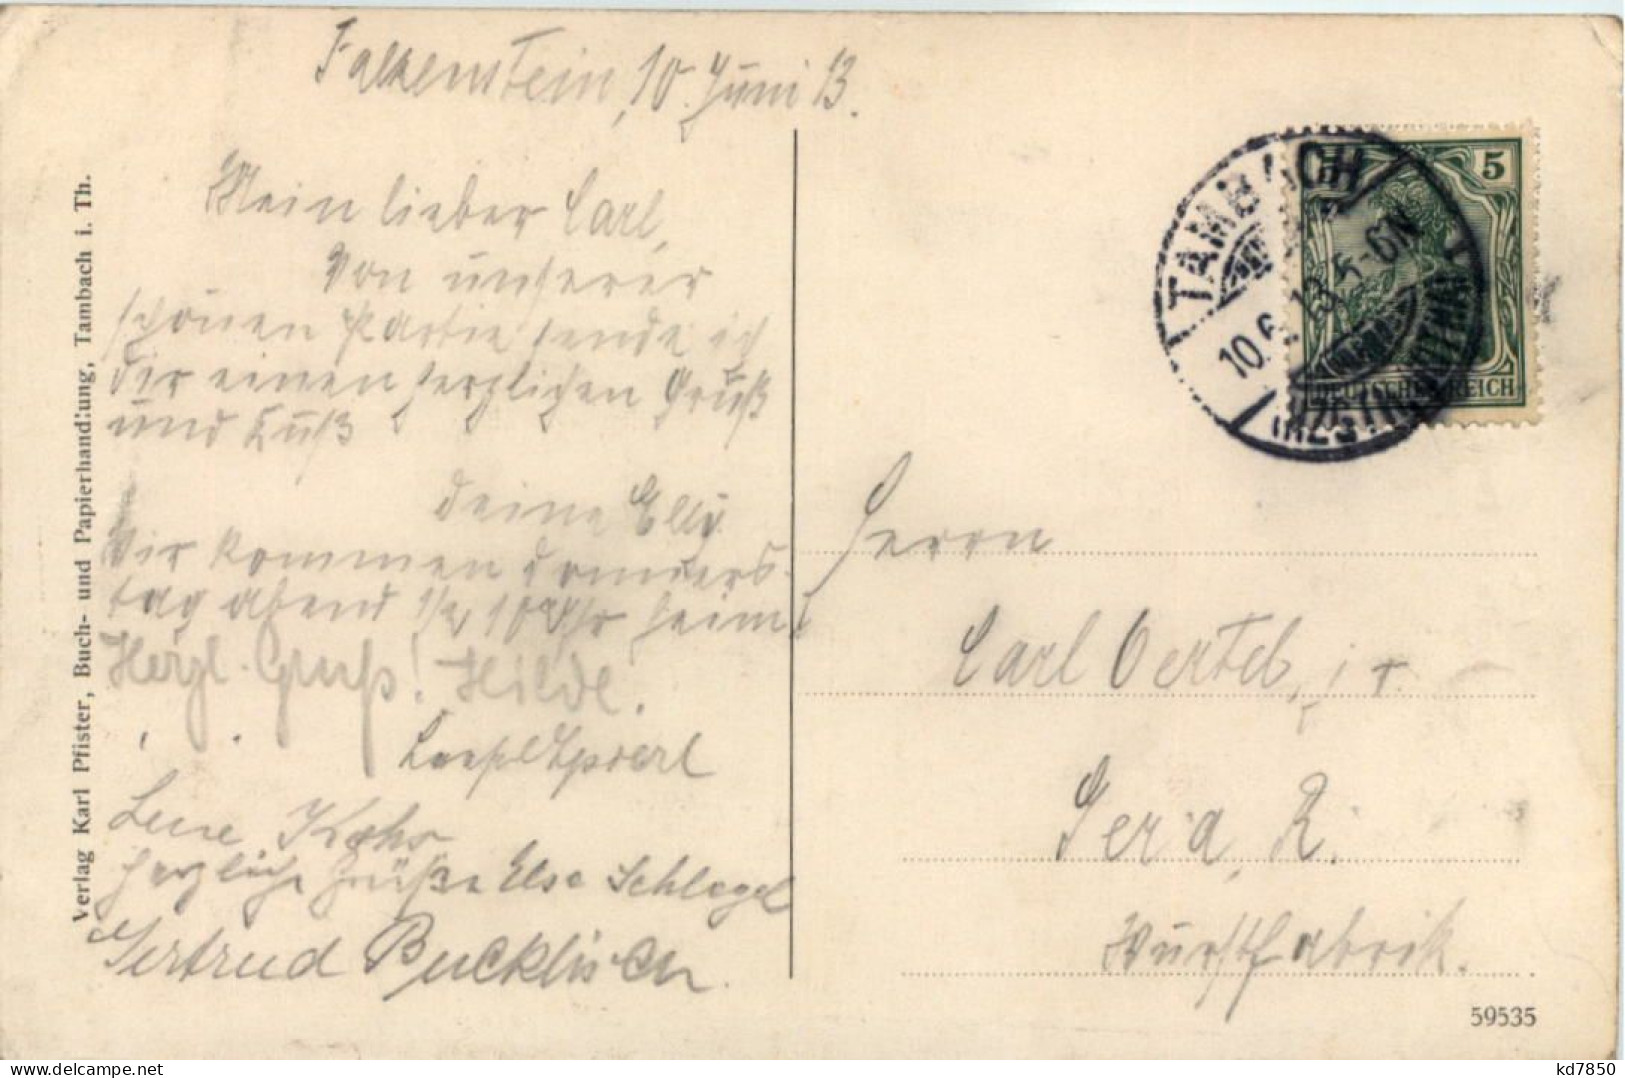 Falkenstein, 10. Juni 13.
Mein lieber Carl,
Von unserer
schönen Partie sende ich
dir einen herzlichen Gruß
und Kuß
deine Elly.
Wir kommen Donners-
tag abend 1/2 10 Uhr heim!
Herzl. Gruß! Hilde.
Lene
herzliche Grüße Else Schlegel
Gertrud
Verlag Karl Pfister, Buch- und Papierhandlung, Tambach i. Th.
TAMBACH
10.6.13. 5-6N
5
DEUTSCHES REICH
Herrn
Carl Oertel, jr.
Gera, R.
Wurstfabrik.
59535
kd7850